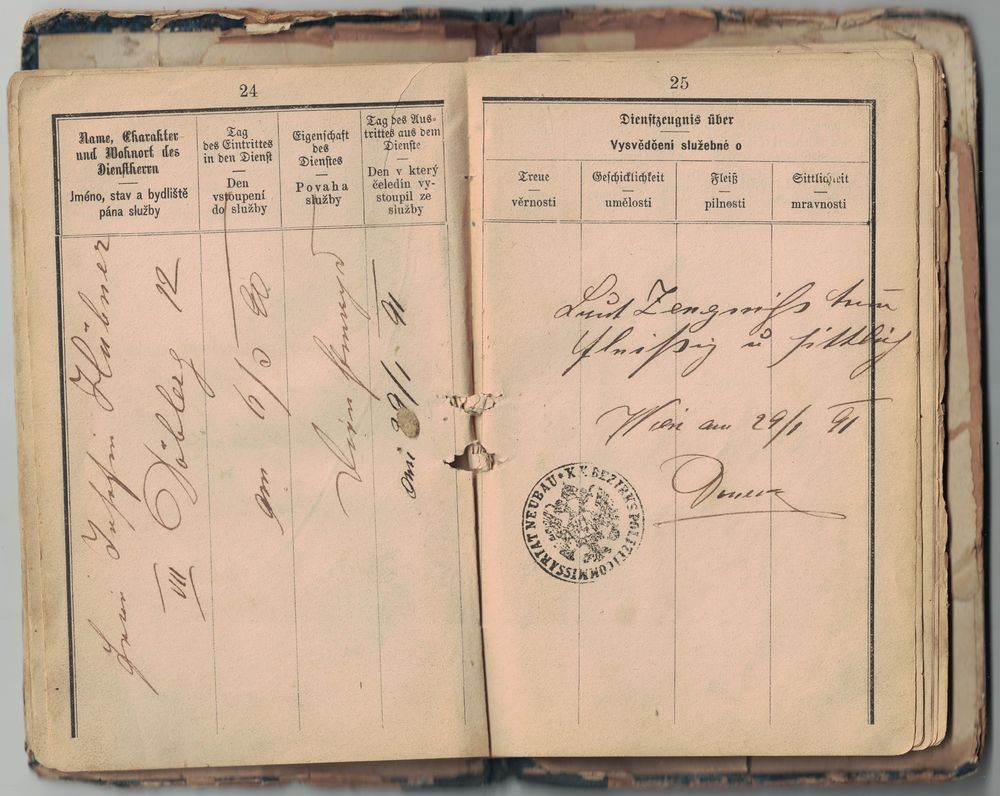 24
Name, Charakter
und Wohnort des
Dienstherrn
Jméno, stav a bydliště
pána služby
Tag
des Eintrittes
in den Dienst
Den
vstoupení
do služby
Eigenschaft
des
Dienstes
Povaha
služby
Tag des Aus-
trittes aus dem
Dienste
Den v který
čeledín vy-
stoupil ze
služby
Hübner
VII Döblerg 12
am 6/3 90
am 29/1 91
25
Dienstzeugnis über
Vysvědčení služebné o
Treue
věrnosti
Geschicklichkeit
umělosti
Fleiß
pilnosti
Sittlichkeit
mravnosti
Laut Zeugniss treu
fleißig u sittlich
Wien am 29/1 91
K. K. BEZIRKS POLIZEI COMMISSARIAT NEUBAU